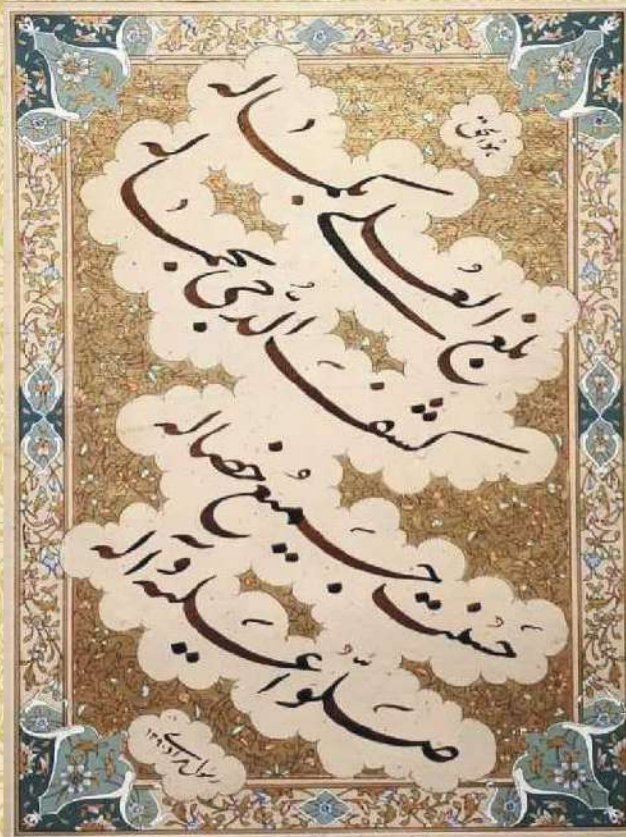 هوالحق
بلغ العلی بکماله
کشف الدجی بجماله
حسنت جمیع خصاله
صلوا علیه وآله
رسول مرادی ۱۳۹۰